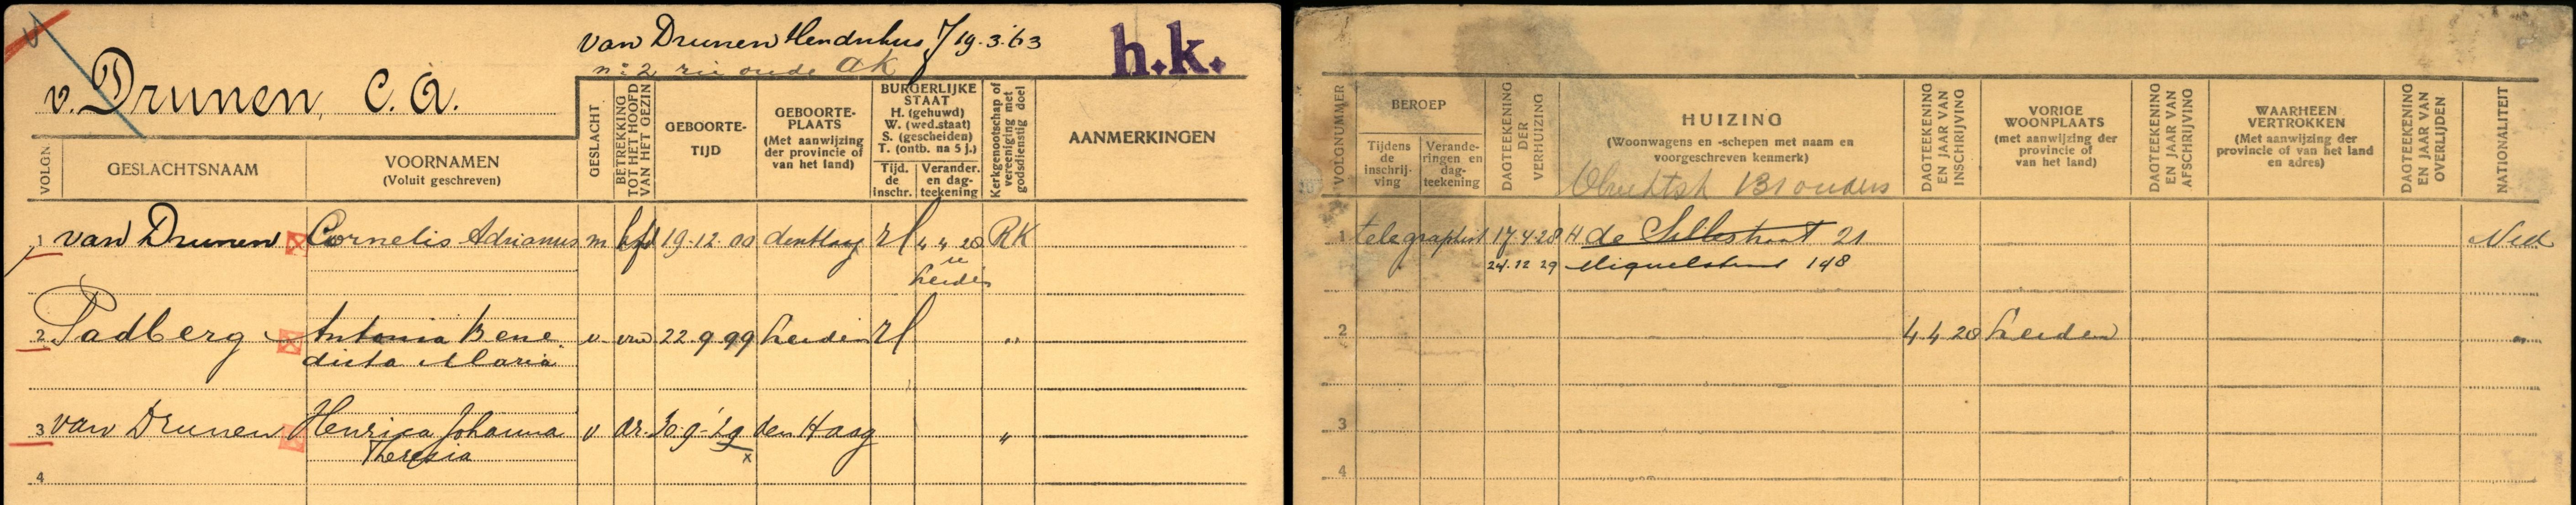 van Drunen Hendrikus 7/19.3.63
h.k.
no 2 zie oude AK
v. Drunen, C. A.
VOLGN.
GESLACHTSNAAM
VOORNAMEN
(Voluit geschreven)
GESLACHT
BETREKKING TOT HET HOOFD VAN HET GEZIN
GEBOORTE-
TIJD
GEBOORTE-
PLAATS
(Met aanwijzing
der provincie of
van het land)
BURGERLIJKE
STAAT
H. (gehuwd)
W. (wed.staat)
S. (gescheiden)
T. (ontb. na 5 j.)
Tijd.
de
inschr.
Verander.
en dag-
teekening
Kerkgenootschap of vereeniging met godsdienstig doel
AANMERKINGEN
1 van Drunen Cornelis Adrianus m hfd 19-12.00 den Haag 4 4 28 RK
te
Leiden
2 Padberg Antonia Bene- v vrw 22.9.99 Leiden "
dicta Maria
3 van Drunen Henrica Johanna v dr. 30-9-'29 den Haag "
Theresia x
4
VOLGNUMMER
BEROEP
Tijdens
de
inschrij-
ving
Verande-
ringen en
dag-
teekening
DAGTEEKENING DER VERHUIZING
HUIZING
(Woonwagens en -schepen met naam en
voorgeschreven kenmerk)
Utrechtsk 131 ouders
DAGTEEKENING EN JAAR VAN INSCHRIJVING
VORIGE
WOONPLAATS
(met aanwijzing der
provincie of
van het land)
DAGTEEKENING EN JAAR VAN AFSCHRIJVING
WAARHEEN
VERTROKKEN
(Met aanwijzing der
provincie of van het land
en adres)
DAGTEEKENING EN JAAR VAN OVERLIJDEN
NATIONALITEIT
1 telegraphist 17.4.28 H de Sillestraat 21 Ned
24.12 29 Miquelstraat 148
2 4.4.28 Leiden "
3
4